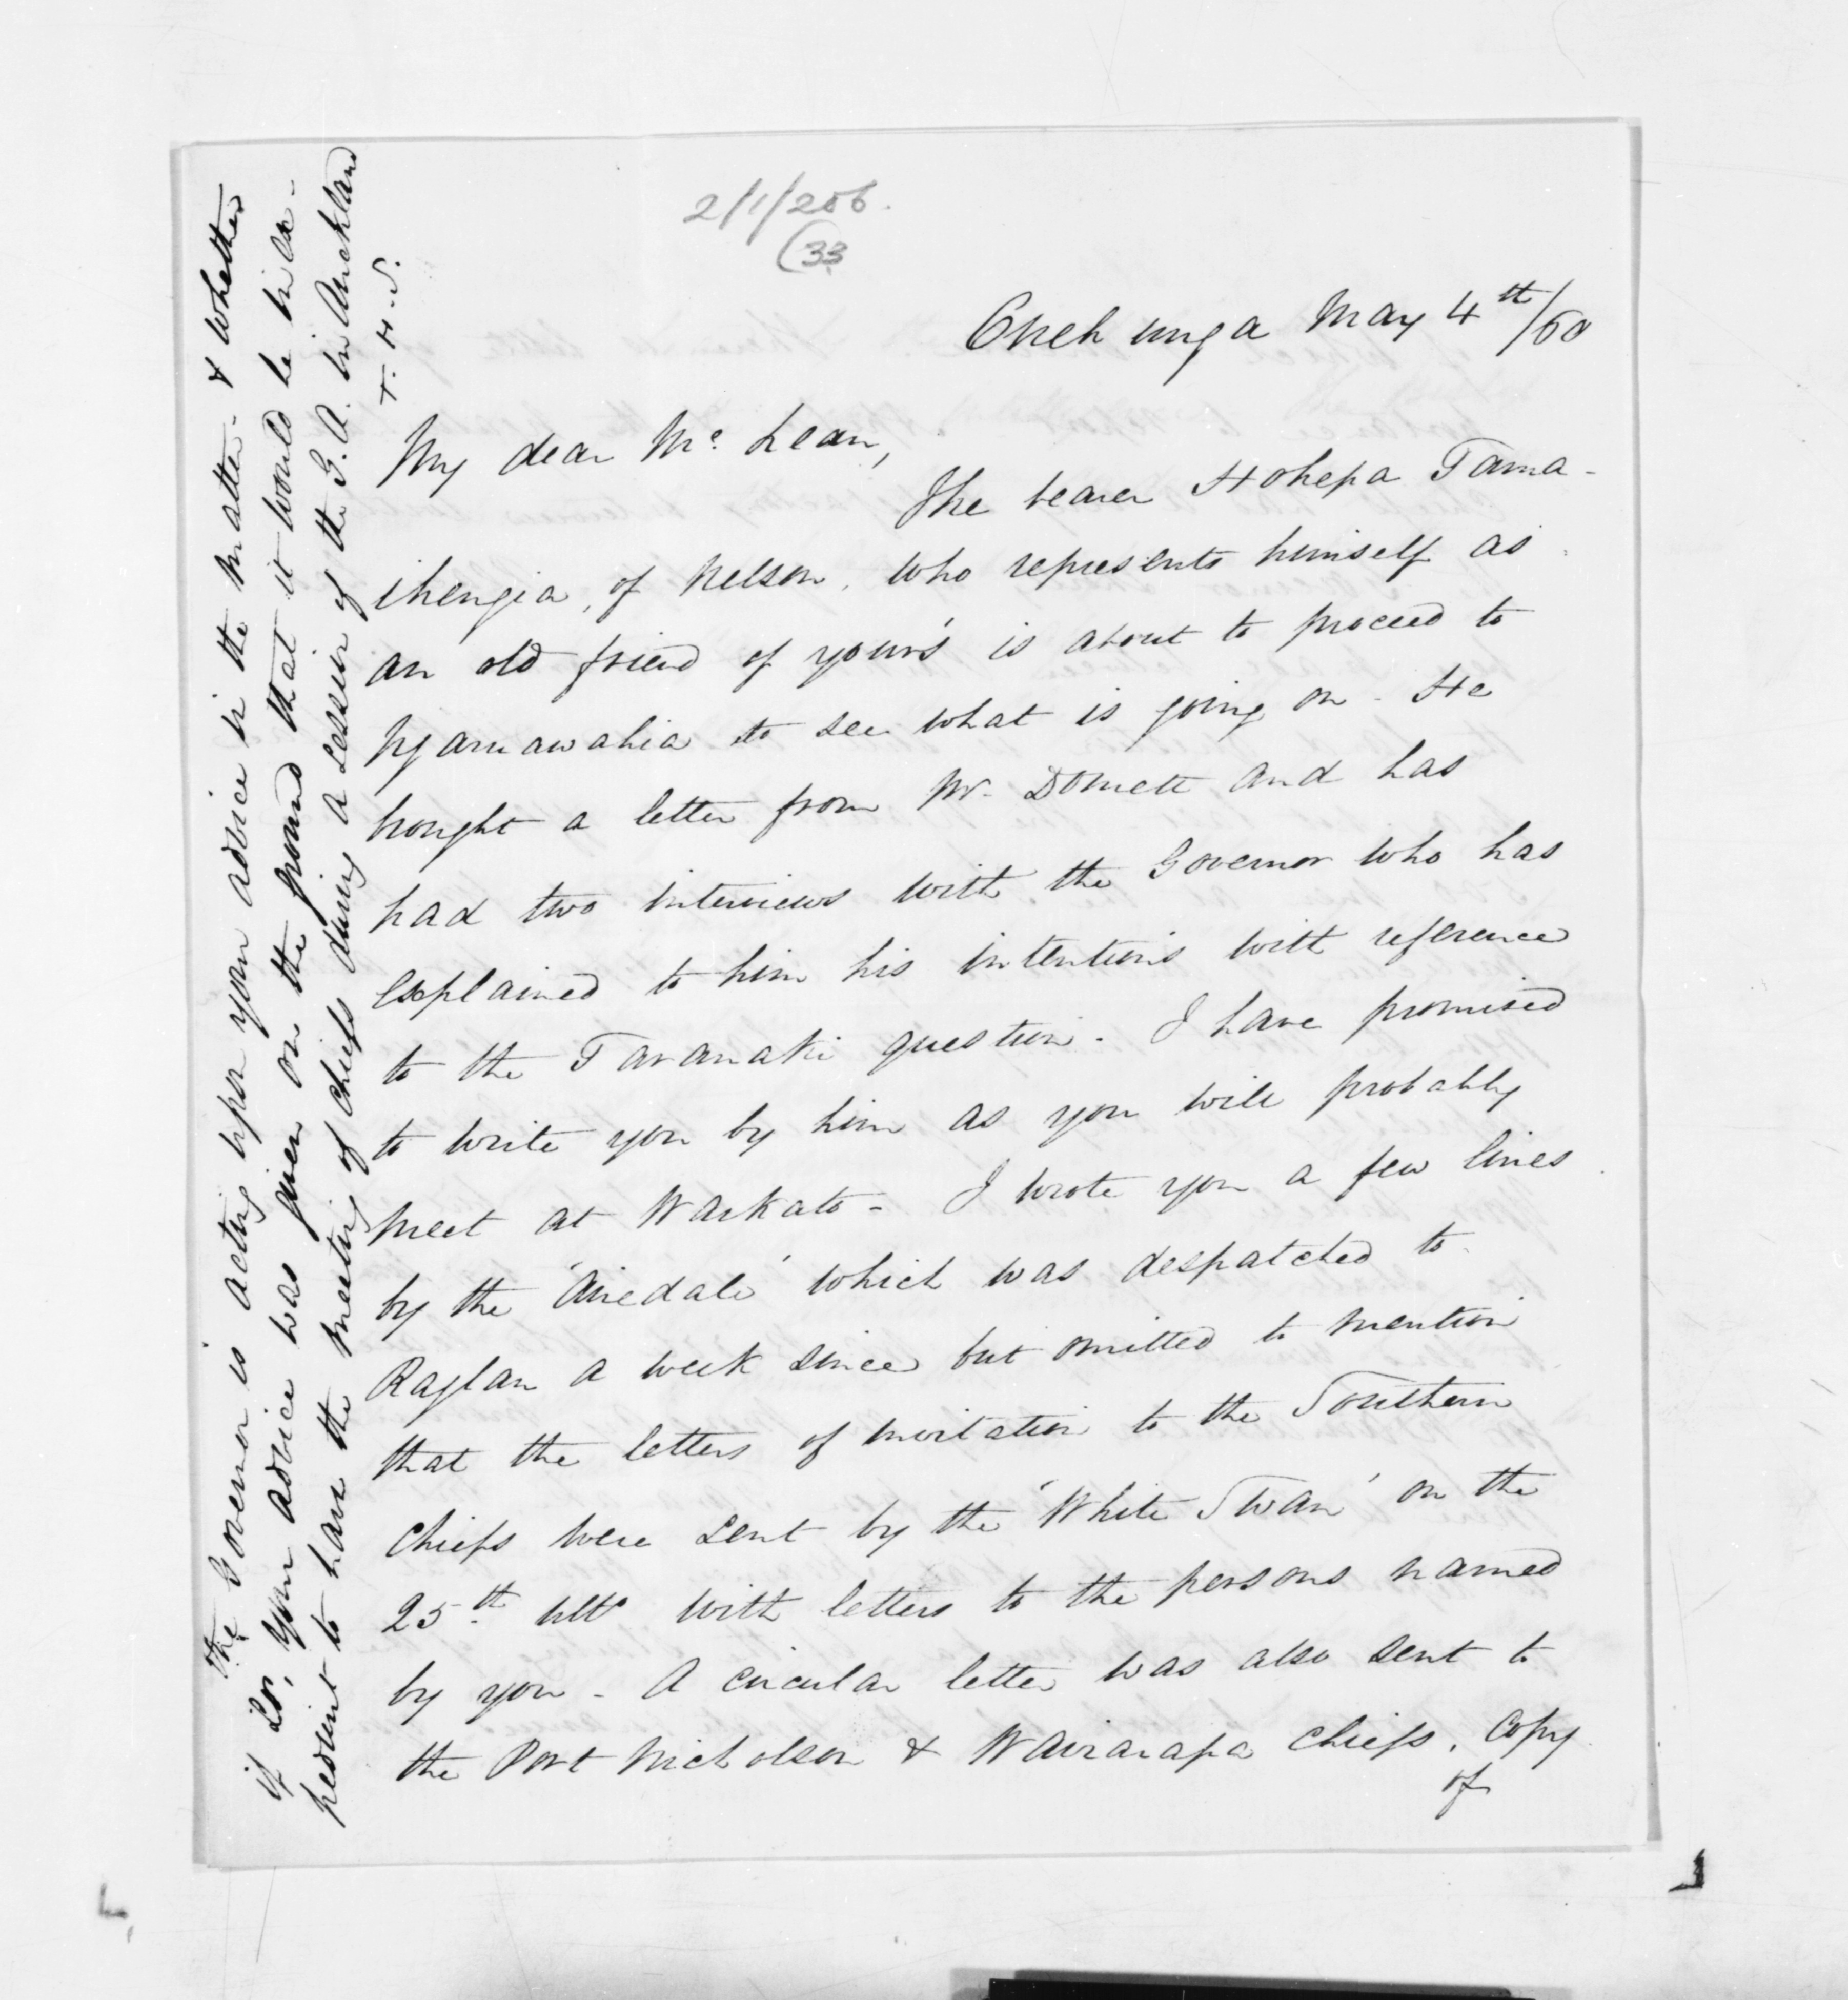 2/1/206.
(33
Onehunga May 4th/60
My dear McLean,
The bearer Hohepa Tama-
ihengia, of Nelson, who represents himself as
an old friend of your's is about to proceed to
Ngaruawahia to see what is going on. He
brought a letter from Mr. Domett and has
had two interviews with the Governor who has
explained to him his intentions with reference
to the Taranaki question. I have promised
to write you by him as you will probably
meet at Waikato - I wrote you a few lines
by the 'Airedale' which was despatched to
Raglan a week since but omitted to mention
that the letters of invitation to the Southern
Chiefs were sent by the 'White Swan' on the
25th ulto with letters to the persons named
by you - A circular letter was also sent to
the Port Nicholson & Wairarapa Chiefs. Copy
of
the Governor is acting upon your advice in the matter - & whether
if so, your advice was given on the ground that it would be inex-
pedient to have the meeting of chiefs during a session of the G. A. in Auckland
T. H. S.